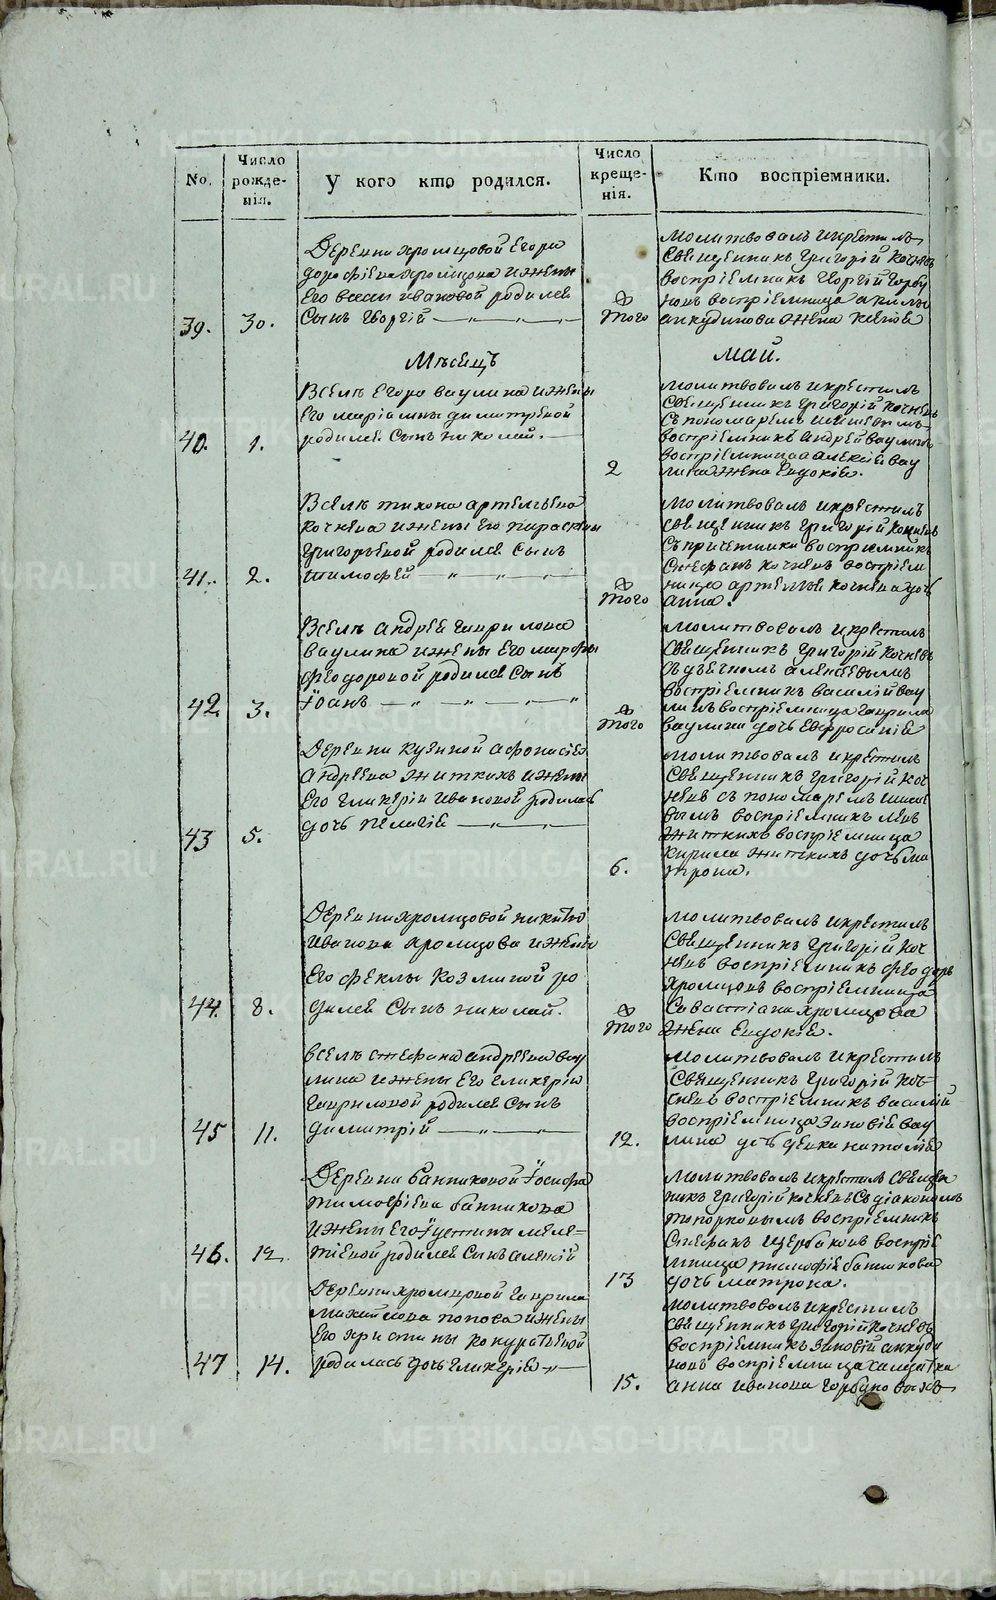 No.
Число рожде-нія.
У кого кто родился.
Число креще-нія.
Кто воспріемники.
39.
30.
Деревни Хромцовой Егора
Дорофѣева Хромцова и жены
Его Ивановой родился
Сынъ Георгій
Того
Молитвовалъ и крестилъ
Священникъ Григорій Кочневъ
воспріемникъ Георгій Горбу
новъ воспріемница
Анкудинова жена
Мѣсяцъ
Май.
40.
1.
Вселѣ Егора Ваулина и жены
Его Маріамны Димитревой
родился Сынъ Николай.
2
Молитвовалъ и крестилъ
Священникъ Григорій Кочневъ
Съ пономаремъ
воспріемникъ Андрей Ваулинъ
воспріемница Алексія Вау
лина жена Евдокія.
41.
2.
Вселѣ Тихона Артемьева
Кочнева и жены Его Параскевы
Григорьевой родился Сынъ
Тимофей
Того
Молитвовалъ и крестилъ
священникъ Григорій Кочневъ
Съ причетники воспріемникъ
Стефанъ Кочневъ воспріем
ница Артемья Кочнева дочь
Анна.
42.
3.
Вселѣ Андрея Гаврилова
Ваулина и жены Его Марфы
Феодоровой родился Сынъ
Іоанъ
Того
Молитвовалъ и крестилъ
Священникъ Григорій Кочневъ
Съ дьячкомъ Алексеевымъ
воспріемникъ Василій Вау
линъ воспріемница Гаврила
Ваулина дочь Евфросинія
43
5.
Деревни Кузиной Афонасія
Андреева Житкихъ и жены
Его Гликеріи Ивановой родилась
дочь Пелагія
6.
Молитвовалъ и крестилъ
Священникъ Григорій Коч
невъ съ пономаремъ
вымъ воспріемникъ Левъ
Житкихъ воспріемница
Кирила Житкихъ дочь Ма
трона.
44.
8.
Деревни Хромцовой Никиты
Иванова Хромцова и жены
Его Феклы Козминой ро
дился Сынъ Николай.
Того
Молитвовалъ и крестилъ
Священникъ Григорій Коч
невъ воспріемникъ Феодоръ
Хромцовъ воспріемница
Савастіана Хромцова
жена Евдокія.
45
11.
Вселѣ Стефана Андреева Вау
лина и жены Его Гликеріи
Гавриловой родился Сынъ
Димитрій
12.
Молитвовалъ и крестилъ
Священникъ Григорій Коч-
невъ воспріемникъ Василій
воспріемница Зиновія Вау
лина дочь девка Наталія
46.
12.
Деревни Банниковой Іосифа
Тимофѣева Банникова
и жены Его Устины Меле-
тіевой родился Сынъ Алексій
13
Молитвовалъ и крестилъ Священ
никъ Григорій Кочневъ Съ діакономъ
Топорковымъ воспріемникъ
Стефанъ Щербаковъ воспріе
мница Тимофія Банникова
дочь Матрона.
47
14.
Деревни Хромцовой Гаврила
Михайлова Попова и жены
Его Христины Кондратьевой
родилась дочь Гликерія
15.
Молитвовалъ и крестилъ
священникъ Григорій Кочневъ
воспріемникъ Зиновій Анкуди
новъ воспріемница
Анна Иванова Горбуновыхъ
METRIKI.GASO-URAL.RU